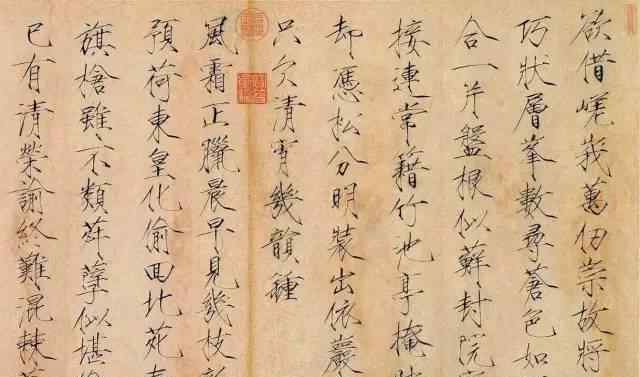 欲借嵯峨萬仞崇故將
巧狀層峯數尋蒼色如
合一片盤根似蘚封院
接連常籍竹池亭掩
却憑松分明裝出依巖
只欠清宵幾韻鍾
風霜正臘晨早見幾枝
預荷東皇化偷回北苑
旗槍雖不類荈孽似堪
已有清榮諭終難混棘